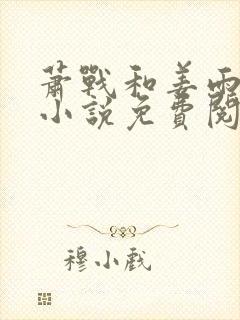 萧戰和姜雨
小說免費閱
穆小戲